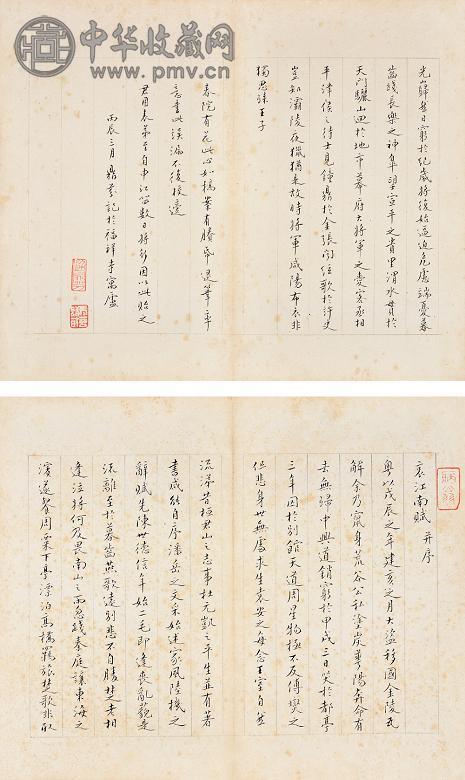 中华收藏网
www.pmv.cn
光巋然日窮於紀歲將復始逼迫危慮端憂暮
齒踐長樂之神皋望宣平之貴里渭水貫於
天門驪山迴於地市幕府大將軍之愛客丞相
平津侯之待士見鐘鼎於金張聞絃歌於許史
豈知灞陵夜獵猶是故時將軍咸陽布衣非
獨思歸王子
春院有花此心如槁業有勝帋退筆率
意書此誤漏不復校邊
君用表弟至自申江留數日將行因以此貽之
丙辰三月鼎記於福祥寺寓廬
哀江南賦 并序
粵以戊辰之年建亥之月大盜移國金陵瓦
解余乃竄身荒谷公私塗炭華陽奔命有
去無歸中興道銷窮於甲戌三日哭於都亭
三年囚於別館天道周星物極不反傅燮之
但悲身世無處求生袁安之每念王室自然
流涕昔桓君山之志事杜元凱之平生並有著
書咸能自序潘岳之文采始述家風陸機之
辭賦先陳世德信年始二毛即逢喪亂藐是
流離至於暮齒燕歌遠別悲不自勝楚老相
逢泣將何及畏南山之雨忽踐秦庭讓東海之
濱遂餐周粟下亭漂泊高橋羈旅楚歌非取